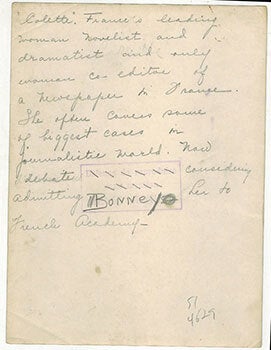 "Colette". France's leading
woman novelist and
dramatist and only
woman co editor of
a newspaper in France.
She often covers some
of biggest cases in
journalistic world. Now
debate considering
admitting her to
French Academy—
TBONNEY
51
4629